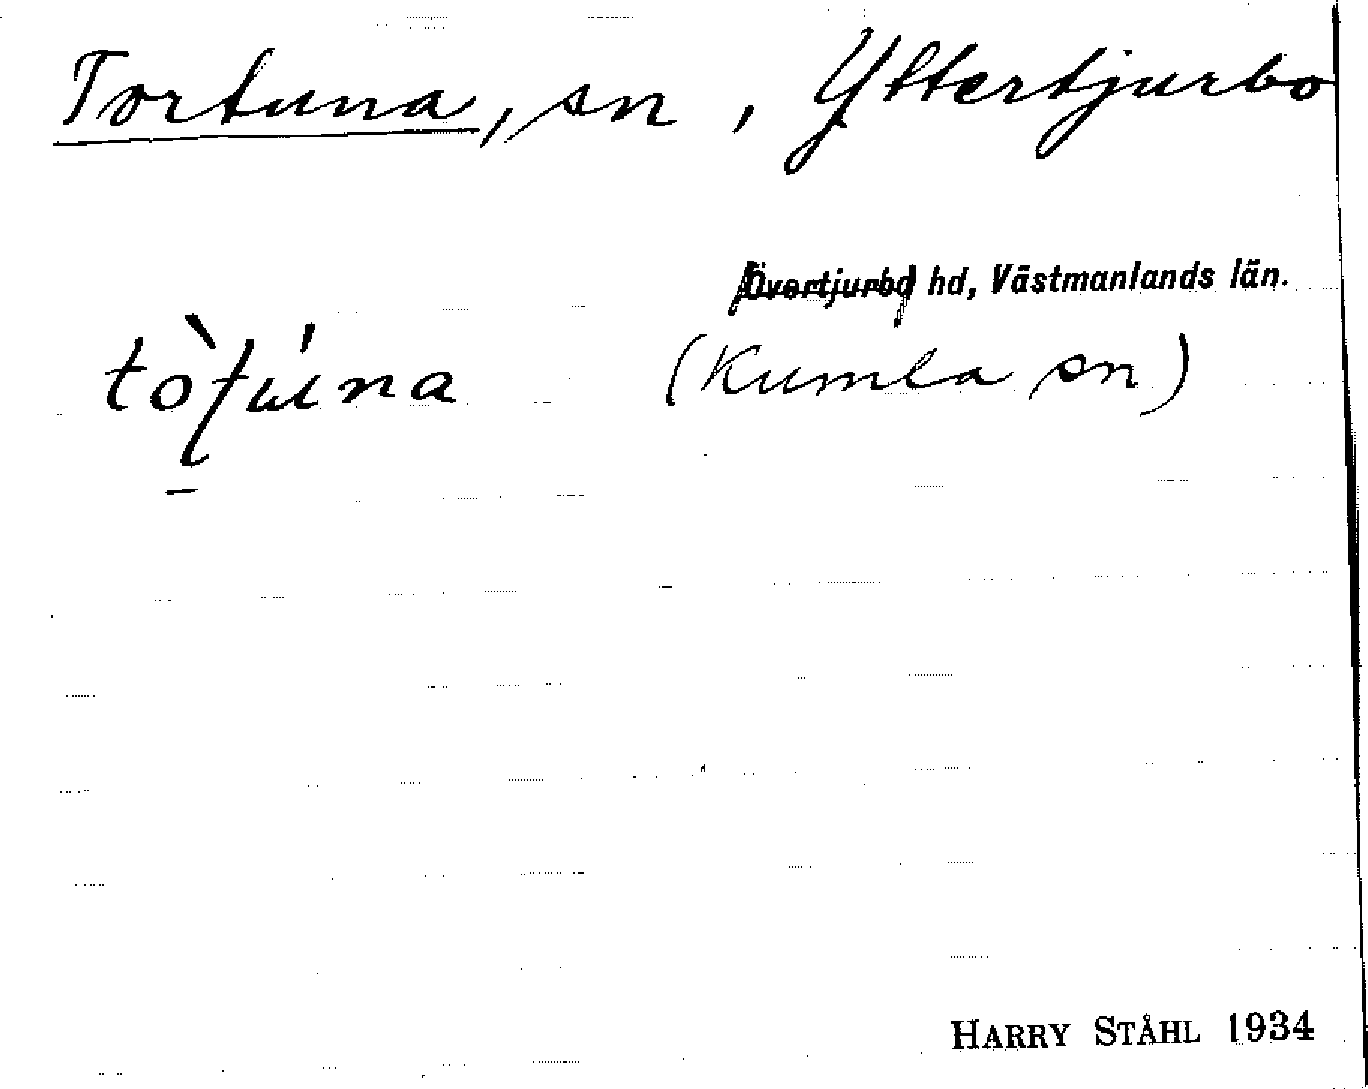 Tortuna, sn, Yttertjurbo
Övertjurbo hd, Västmanlands län.
(Kumla sn)
HARRY STÅHL 1934